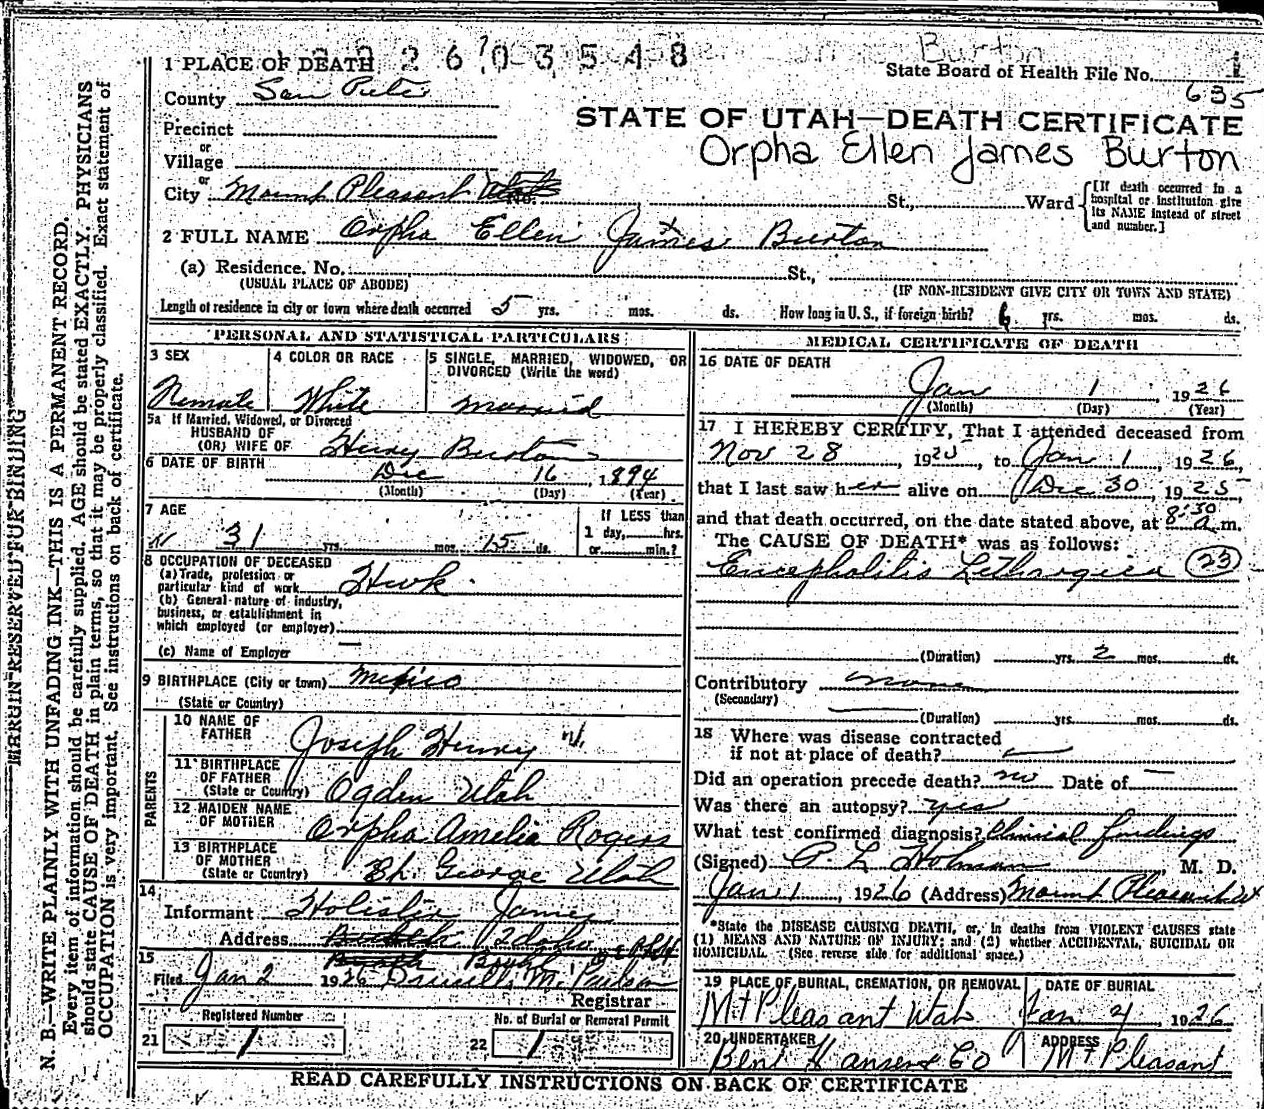 Burton
2 6 0 3 5 4 8
State Board of Health File No. 1
635
1 PLACE OF DEATH
County San Pete
STATE OF UTAH—DEATH CERTIFICATE
Orpha Ellen James Burton
Precinct
or
Village
or
City Mount Pleasant No. St., Ward
[If death occurred in a hospital or institution give its NAME instead of street and number.]
2 FULL NAME Orpha Ellen James Burton
(a) Residence. No. St.,
(USUAL PLACE OF ABODE) (IF NON-RESIDENT GIVE CITY OR TOWN AND STATE)
Length of residence in city or town where death occurred 5 yrs. mos. ds. How long in U. S., if foreign birth? 6 yrs. mos. ds.
PERSONAL AND STATISTICAL PARTICULARS
3 SEX
Female
4 COLOR OR RACE
White
5 SINGLE, MARRIED, WIDOWED, OR
DIVORCED (Write the word)
Married
5a If Married, Widowed, or Divorced
HUSBAND OF
(OR) WIFE OF Henry Burton
6 DATE OF BIRTH Dec 16, 1894
(Month) (Day) (Year)
7 AGE
31 yrs. mos. 15 ds.
If LESS than
1 day, hrs.
or min.?
8 OCCUPATION OF DECEASED
(a) Trade, profession or
particular kind of work Hwk
(b) General nature of industry,
business, or establishment in
which employed (or employer)
(c) Name of Employer —
9 BIRTHPLACE (City or town) Mexico
(State or Country)
PARENTS
10 NAME OF
FATHER Joseph Henry
11 BIRTHPLACE
OF FATHER
(State or Country) Ogden Utah
12 MAIDEN NAME
OF MOTHER Orpha Amelia Rogers
13 BIRTHPLACE
OF MOTHER
(State or Country) St. George Utah
14
Informant James
Address Idaho
15
Filed Jan 2 1926
Registrar
Registered Number
21 1
No. of Burial or Removal Permit
22 1
MEDICAL CERTIFICATE OF DEATH
16 DATE OF DEATH
Jan 1 1926
(Month) (Day) (Year)
17 I HEREBY CERTIFY, That I attended deceased from
Nov 28, 1925, to Jan 1, 1926,
that I last saw her alive on Dec 30, 1925
and that death occurred, on the date stated above, at 8:30 a.m.
The CAUSE OF DEATH* was as follows:
Encephalitis Lethrogica (23)
(Duration) yrs. 2 mos. ds.
Contributory none
(Secondary)
(Duration) yrs. mos. ds.
18 Where was disease contracted
if not at place of death?
Did an operation precede death? no Date of —
Was there an autopsy? yes
What test confirmed diagnosis? Clinical findings
(Signed) P. L. Holman, M. D.
Jan 1, 1926 (Address) Mount Pleasant Ut
*State the DISEASE CAUSING DEATH, or, in deaths from VIOLENT CAUSES state
(1) MEANS AND NATURE OF INJURY; and (2) whether ACCIDENTAL, SUICIDAL OR
HOMICIDAL. (See reverse side for additional space.)
19 PLACE OF BURIAL, CREMATION, OR REMOVAL
Mt Pleasant Utah
DATE OF BURIAL
Jan 4, 1926
20 UNDERTAKER
Bent Hansen & Co
ADDRESS
Mt Pleasant
READ CAREFULLY INSTRUCTIONS ON BACK OF CERTIFICATE
MARGIN RESERVED FOR BINDING
N. B.—WRITE PLAINLY WITH UNFADING INK—THIS IS A PERMANENT RECORD.
Every item of information should be carefully supplied. AGE should be stated EXACTLY. PHYSICIANS
should state CAUSE OF DEATH in plain terms, so that it may be properly classified. Exact statement of
OCCUPATION is very important. See instructions on back of certificate.